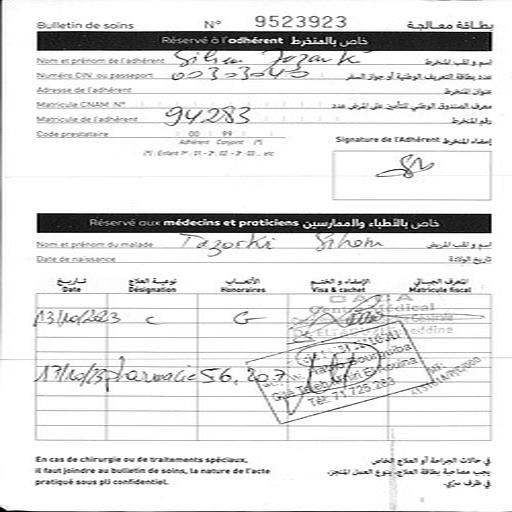 Bulletin de soins N° 9523923 بطاقة معالجة
Réservé à l'adhérent خاص بالمنخرط
Nom et prénom de l'adhérent Sihem Tazarki اسم و لقب المنخرط
Numéro CIN ou passeport 00303040 عدد بطاقة التعريف الوطنية أو جواز السفر
Adresse de l'adhérent عنوان المنخرط
Matricule CNAM N° معرف الصندوق الوطني للتأمين على المرض عدد
Matricule de l'adhérent 94283 رقم المنخرط
Code prestataire 00 99 (*)
Adhérent Conjoint (*)
(*) : Enfant 1er : 01 - 2e : 02 - 3e : 03 ... etc
Signature de l'Adhérent إمضاء المنخرط
Réservé aux médecins et praticiens خاص بالأطباء والممارسين
Nom et prénom du malade Tazarki Sihem اسم و لقب المريض
Date de naissance تاريخ الولادة
تاريخ نوعية العلاج الأتعاب الإمضاء و الختم المعرف الجبائي
Date Désignation Honoraires Visa & cachet Matricule fiscal
13/10/2023 C G
13/10/23 pharmacie 56,207
Bourguiba
Tél: 71 725 283
En cas de chirurgie ou de traitements spéciaux,
il faut joindre au bulletin de soins, la nature de l'acte
pratiqué sous pli confidentiel.
في حالات الجراحة أو العلاج الخاص
يجب مصاحبة بطاقة العلاج، بنوع العمل المنجز،
في ظرف سري.